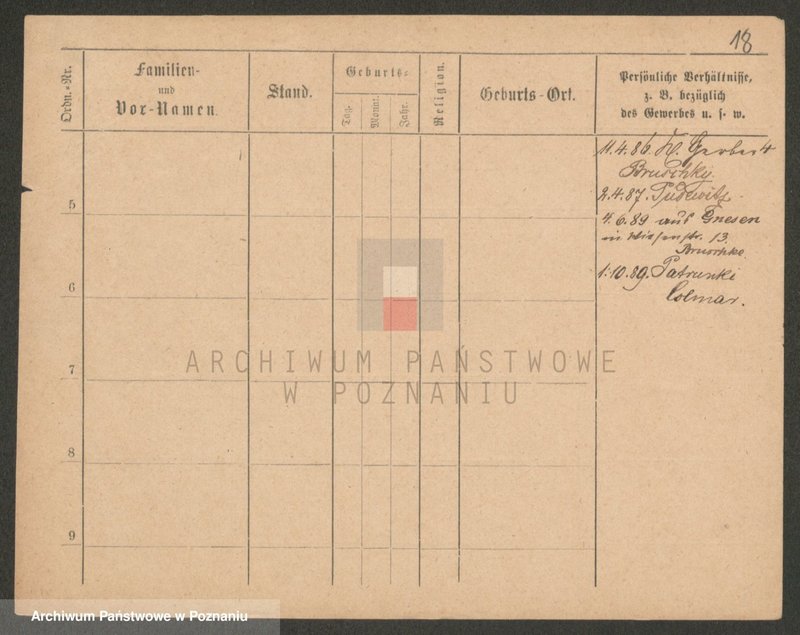 18
Ordn.-Nr.
Familien-
und
Vor-Namen.
Stand.
Geburts-
Tag.
Monat.
Jahr.
Religion.
Geburts-Ort.
Persönliche Verhältnisse,
z. B. bezüglich
des Gewerbes u. s. w.
11.4.86.
Bruschky.
2.4.87. Pudewitz.
4.6.89 aus Gnesen
13.
Bruschke
1.10.89.
Colmar.
5
6
7
8
9
ARCHIWUM PAŃSTWOWE
W POZNANIU
Archiwum Państwowe w Poznaniu